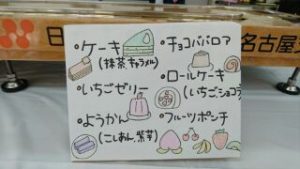 日
名古屋
・ケーキ
(抹茶キャラメル)
・いちごゼリー
・ようかん
(こしあん、紫芋)
・チョコババロア
・ロールケーキ
(いちごショコラ)
・フルーツポンチ